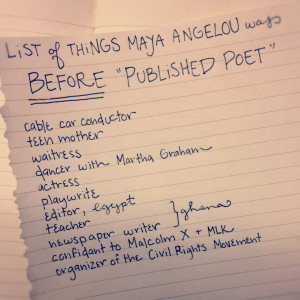 LIST of THINGS MAYA ANGELOU was
BEFORE "PUBLISHED POET"
cable car conductor
teen mother
waitress
dancer with Martha Graham
actress
playwrite
editor, egypt
teacher
newspaper writer } ghana
confidant to Malcolm X + MLK
organizer of the Civil Rights Movement